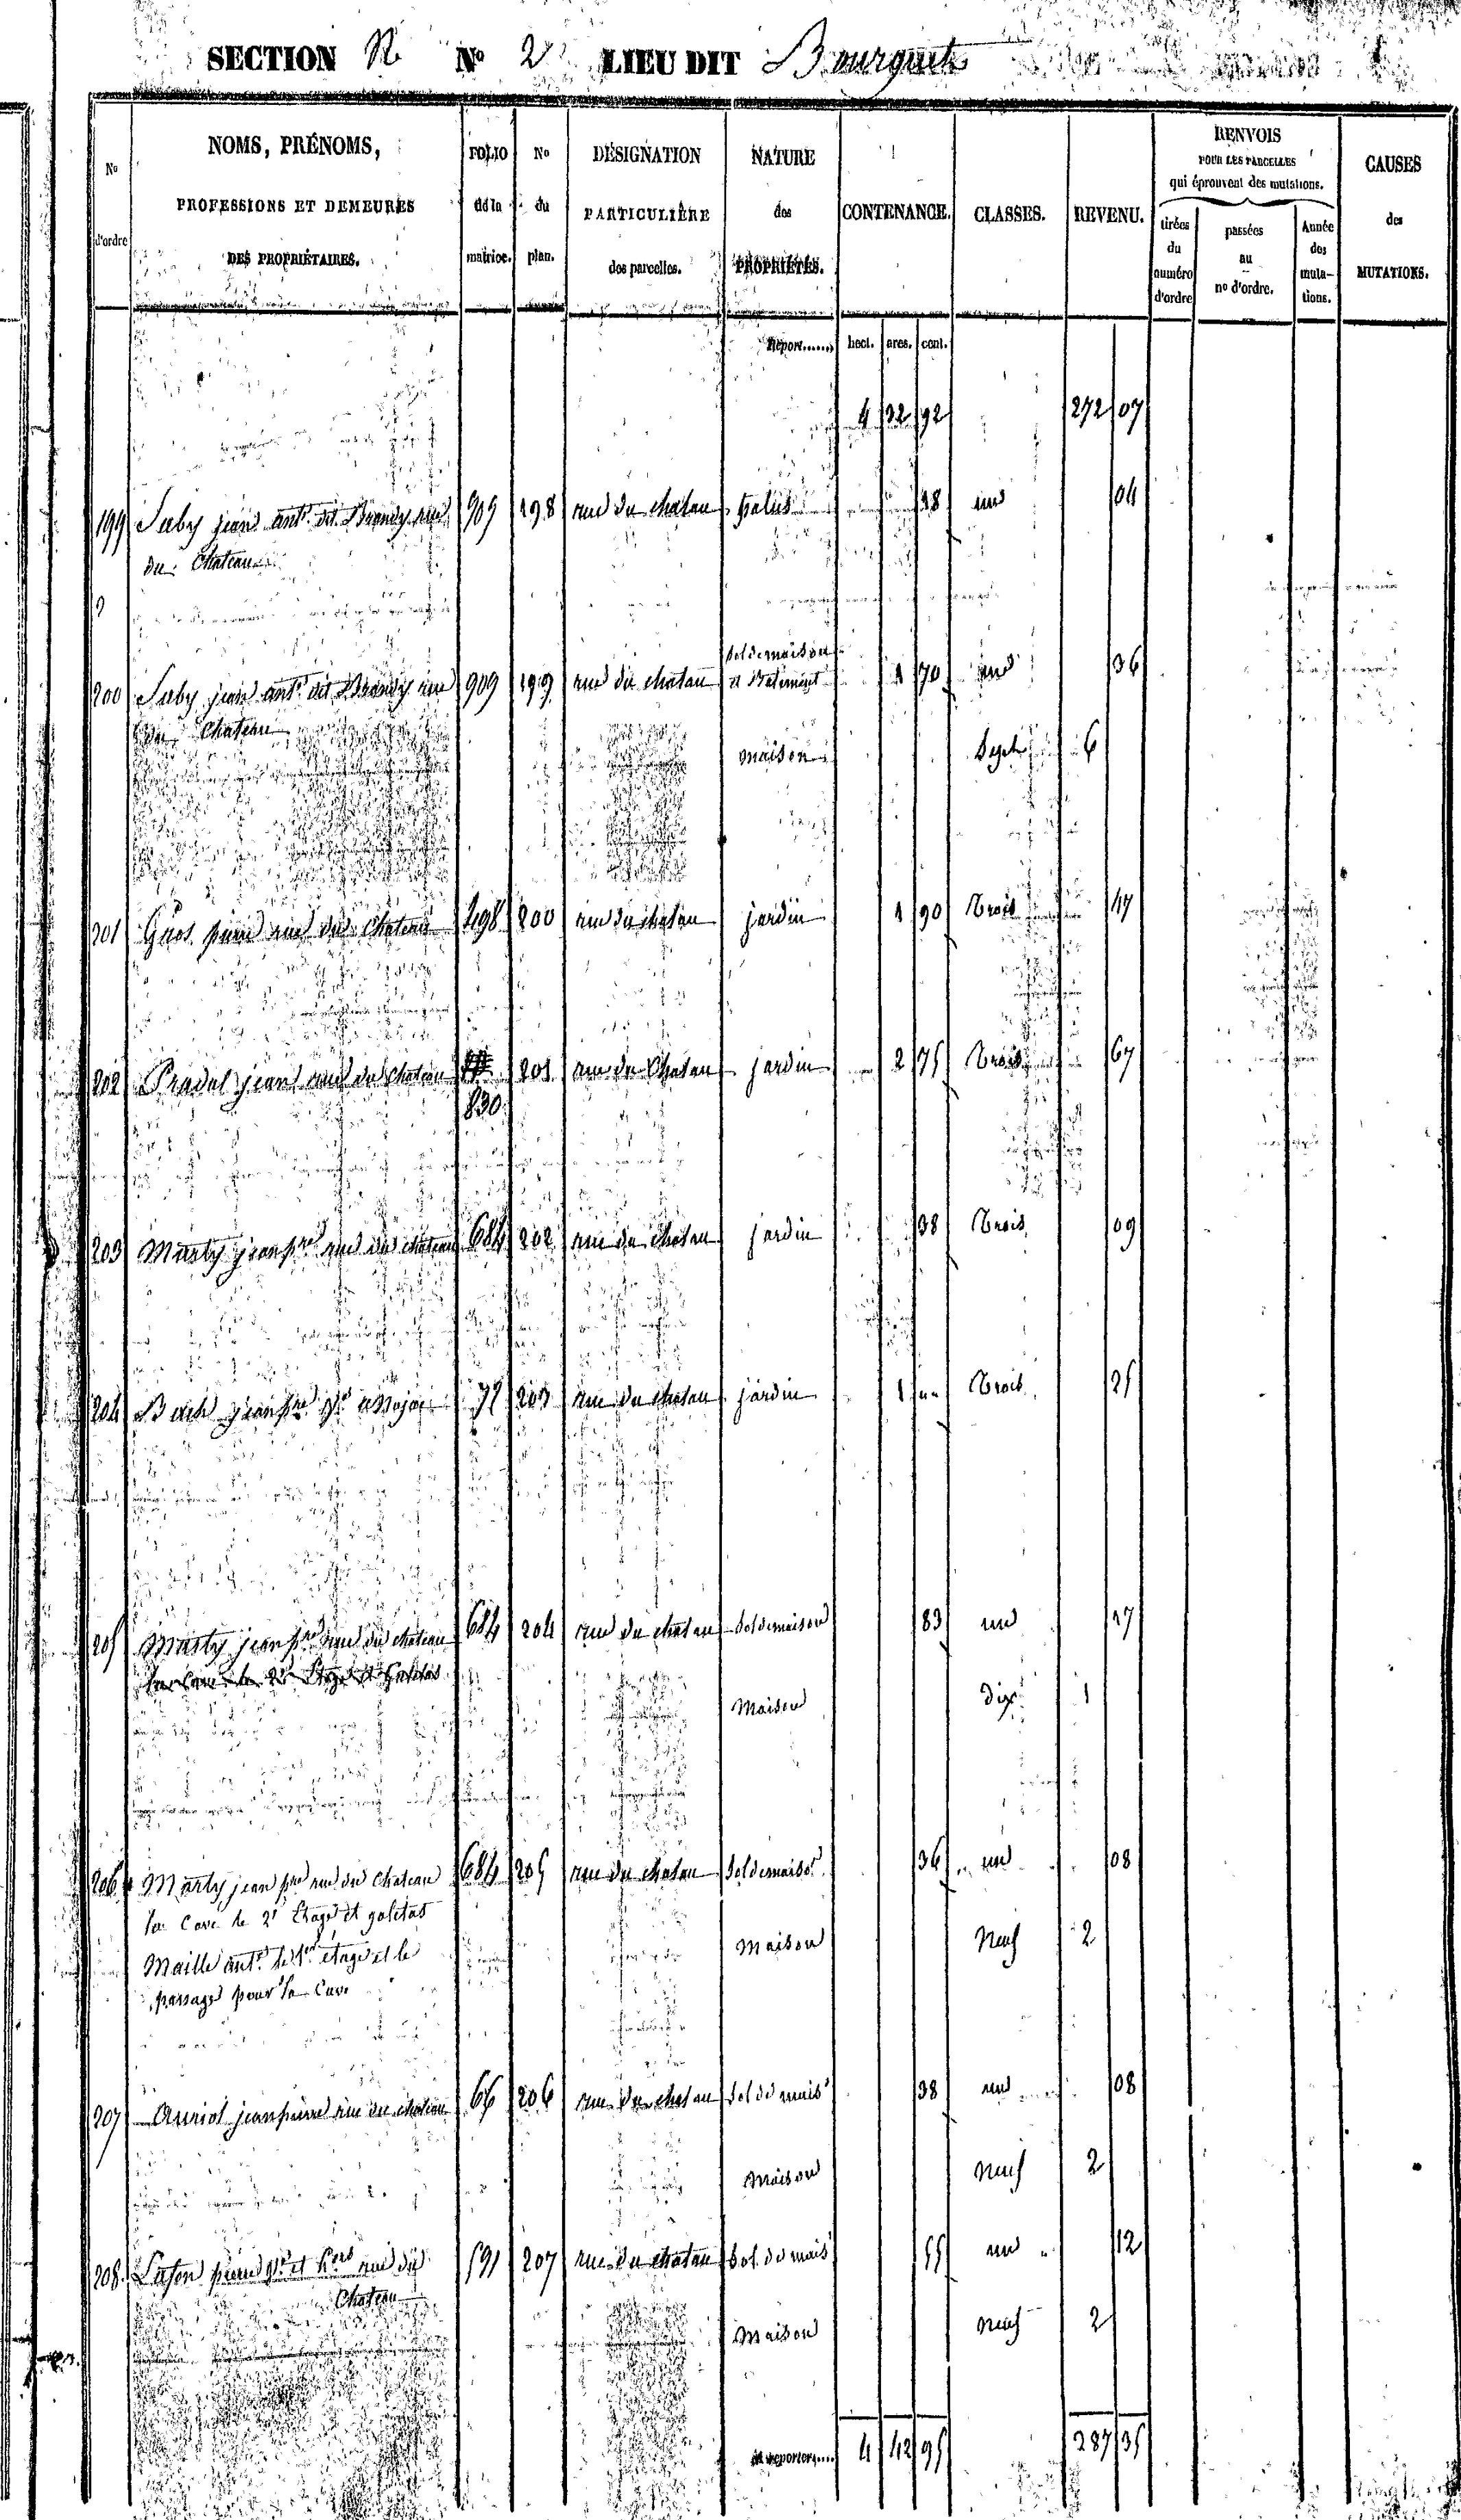 SECTION N No 2 LIEU DIT Bourguet
No d'ordre
NOMS, PRÉNOMS,
PROFESSIONS ET DEMEURES
DES PROPRIÉTAIRES.
FOLIO de la matrice.
No du plan.
DÉSIGNATION PARTICULIÈRE des parcelles.
NATURE des PROPRIÉTÉS.
CONTENANCE.
CLASSES.
REVENU.
RENVOIS
POUR LES PARCELLES
qui éprouvent des mutations.
tirées du numéro d'ordre
passées au no d'ordre.
Année des mutations.
CAUSES des MUTATIONS.
Report...... hect. ares. cent.
4 32 92 272 07
199 Saby jean ant. dit rue 909 198 rue du chateau patus 38 un 04
du Chateau
sol de maison
200 Saby jean ant. dit rue 909 199 rue du chateau et Batiment 1 70 un 36
du Chateau
maison Sept 6
201 Gros pierre rue du Chateau 498 200 rue du chateau jardin 1 90 Trois 47
202 Pradal jean rue du chateau 201 rue du Chateau jardin 2 75 Trois 67
830
203 Marty jean pre rue du chateau 684 202 rue du chateau jardin 38 Trois 09
204 jean pre 203 rue du chateau jardin 1 " Trois 25
205 Marty jean pre rue du chateau 684 204 rue du chateau sol de maison 83 un 17
la Cave le 2e Etage et galetas
Maison dix 1
206 Marty jean pre rue du chateau 684 205 rue du chateau sol de maiso. 36 un 08
la Cave le 2e Etage et galetas
Maison Neuf 2
Maille ant. le 1er étage et le
passage pour la Cave
207 Auriol jean pierre rue du chateau 66 206 rue du chateau sol de mais 38 un 08
Maison neuf 2
208 Lafon pierre rue du 591 207 rue du chateau sol de mais 55 un 12
Chateau
Maison neuf 2
à reporter.... 4 42 95 287 35